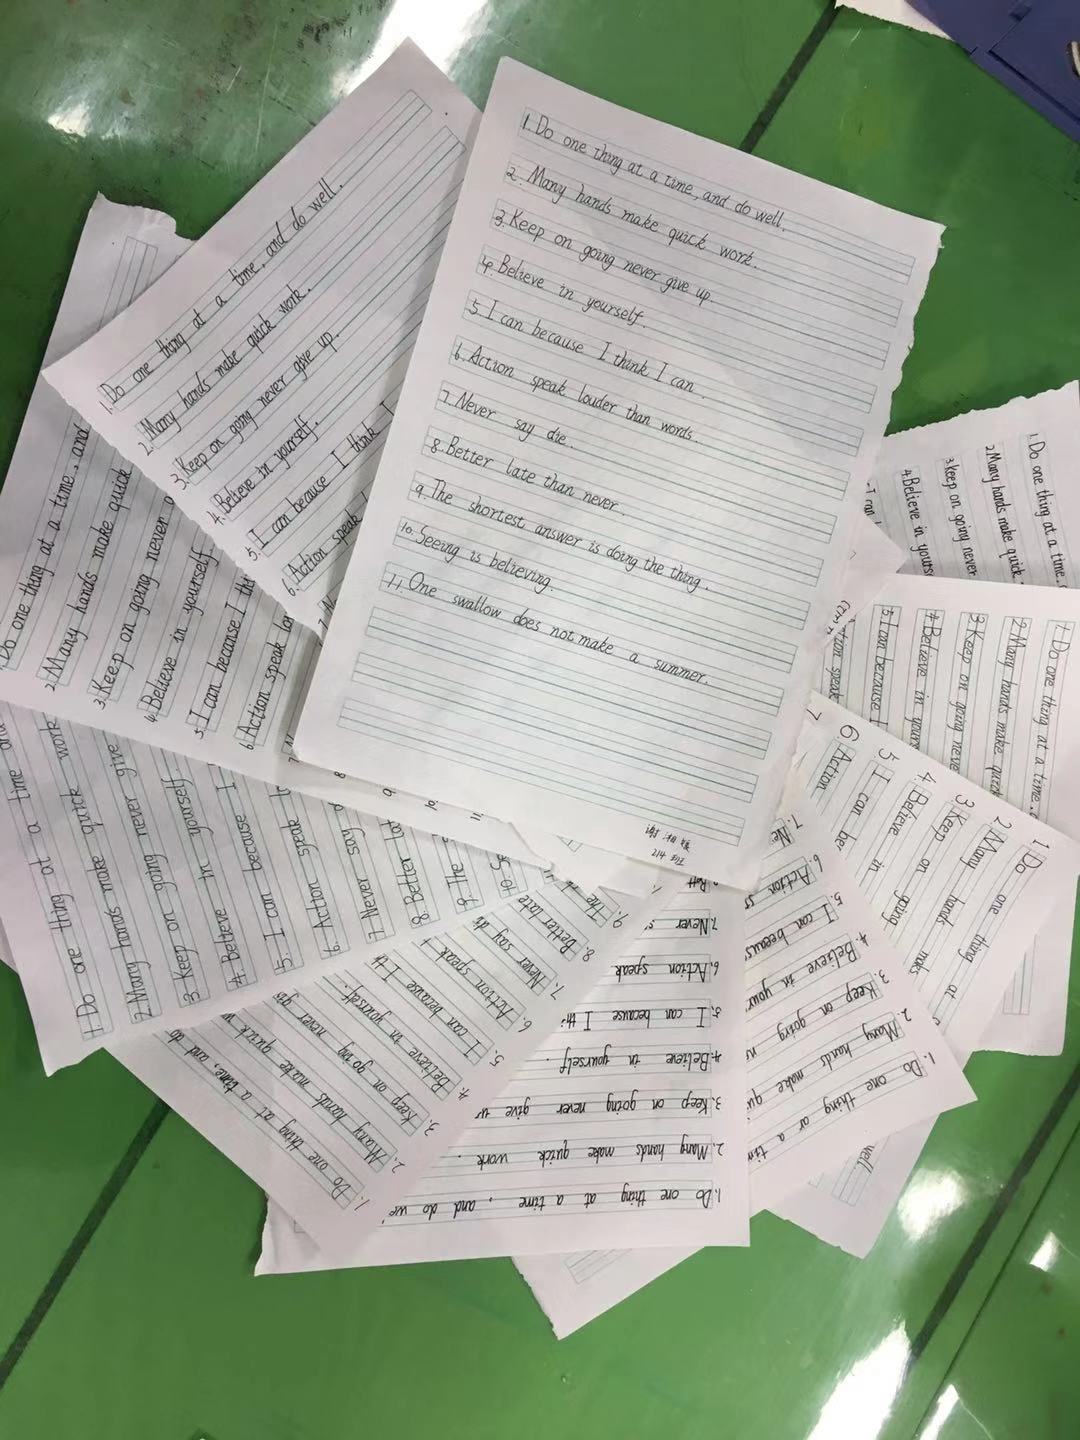 1. Do one thing at a time, and do well.
2. Many hands make quick work.
3. Keep on going never give up.
4. Believe in yourself.
5. I can because I think I can.
6. Action speak louder than words.
7. Never say die.
8. Better late than never.
9. The shortest answer is doing the thing.
10. Seeing is believing.
11. One swallow does not make a summer.
214 班
1. Do one thing at a time, and do well.
2. Many hands make quick work.
3. Keep on going never give up.
4. Believe in yourself.
5. I can because I think I
6. Action speak
1. Do one thing at a time, and
2. Many hands make quick
3. Keep on going never
4. Believe in yourself
5. I can because I thi
6. Action speak lou
1. Do one thing at a time and
2. Many hands make quick work
3. Keep on going never give
4. Believe in yourself
5. I can because I
6. Action speak lo
7. Never say d
8. Better lat
9. The s
10. Se
1. Do one thing at a time, and do
2. Many hands make quick w
3. Keep on going never gi
4. Believe in yourself.
5. I can because I th
6. Action speak
7. Never say di
8. Better late
9. The
1. Do one thing at a time, and do we
2. Many hands make quick work.
3. Keep on going never give u
4. Believe in yourself.
5. I can because I thi
6. Action speak
7. Never s
1. Do one thing at a tim
2. Many hands make qui
3. Keep on going n
4. Believe in your
5. I can because
6. Action s
7. Ne
well
1. Do one thing at
2. Many hands make
3. Keep on going
4. Believe in
5. I can be
6. Action
7.
1. Do one thing at a time,
2. Many hands make quick
3. Keep on going neve
4. Believe in yours
5. I can because I
ction speak
1. Do one thing at a time,
2. Many hands make quick
3. Keep on going never
4. Believe in yours
5. I can